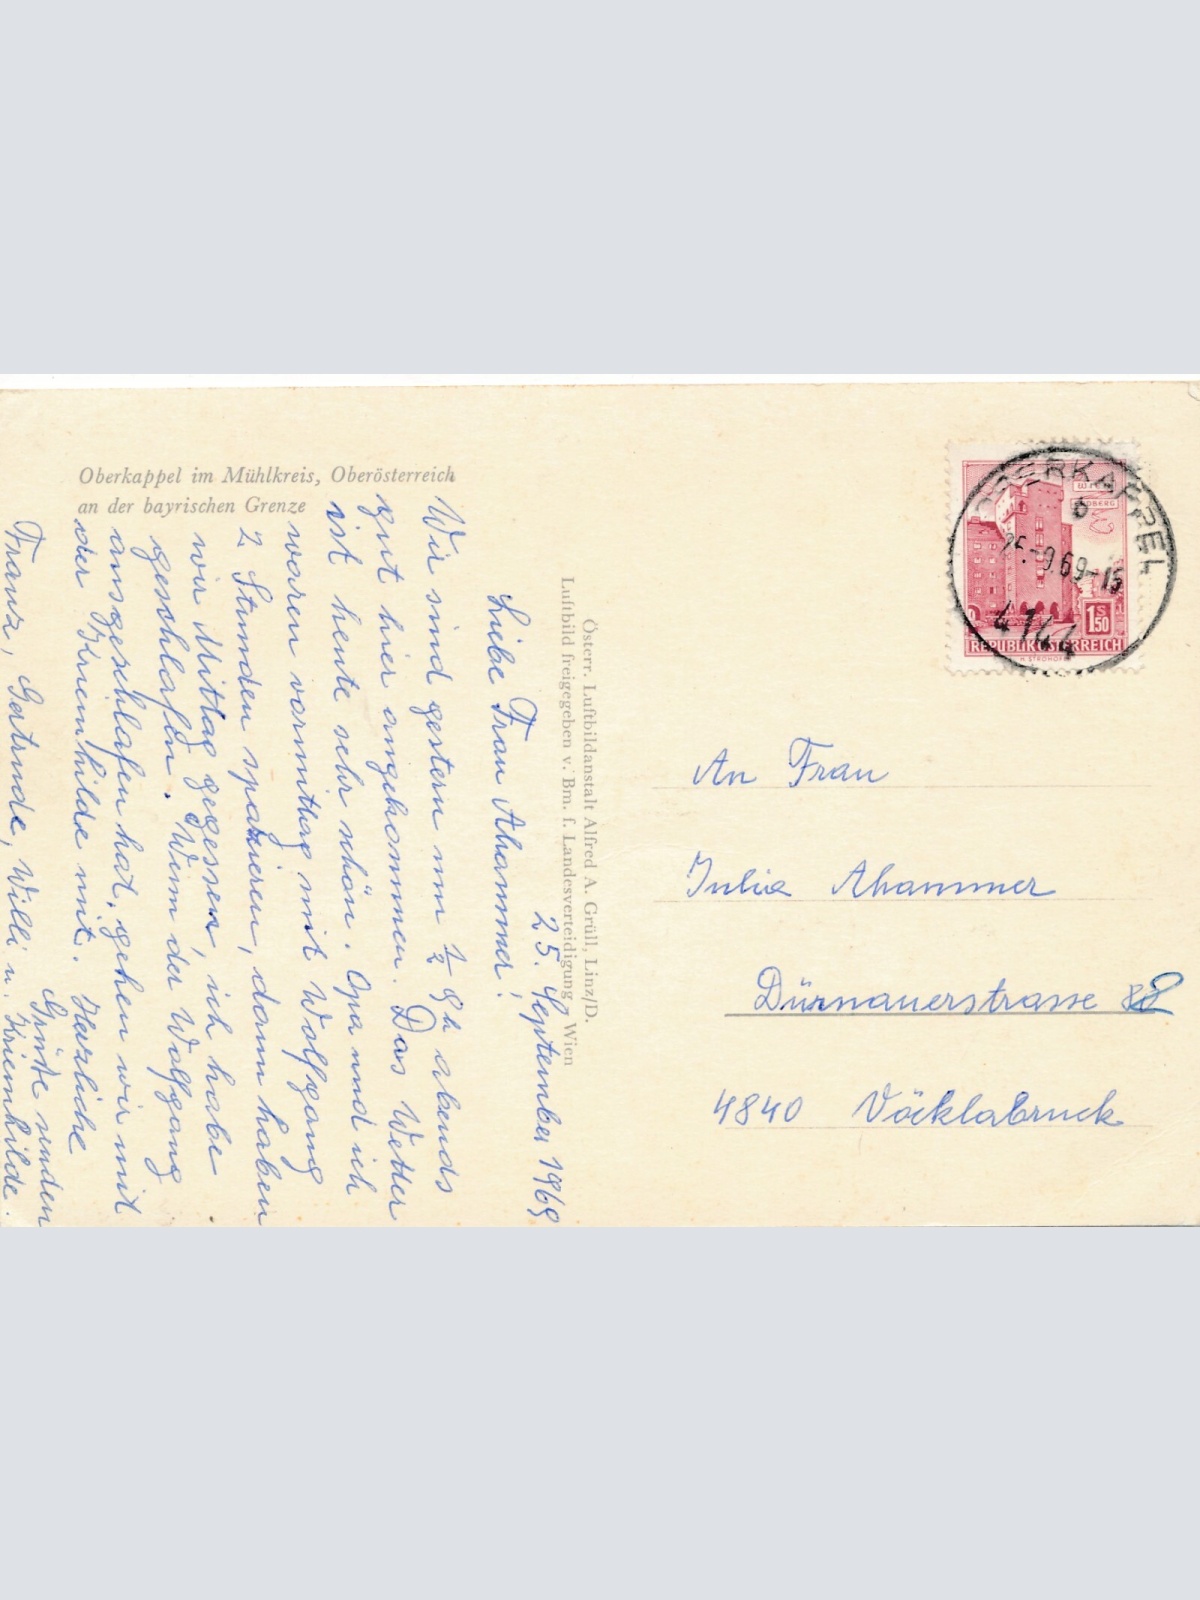 Oberkappel im Mühlkreis, Oberösterreich
an der bayrischen Grenze
25. September 1969
Liebe Frau Ahammer!
Wir sind gestern um ½ 9h abends
gut hier angekommen. Das Wetter
ist heute sehr schön. Opa und ich
waren vormittag mit Wolfgang
2 Stunden spazieren, dann haben
wir Mittag gegessen, ich habe
geschlafen. Wenn der Wolfgang
ausgeschlafen hat, gehen wir mit
der Kriemhilde mit. Herzliche
Grüße senden
Franz, Gertrude, Willi u. Kriemhilde.
Österr. Luftbildanstalt Alfred A. Grüll, Linz/D.
Luftbild freigegeben v. Bm. f. Landesverteidigung Wien
OBERKAPPEL
b
25.-9.69-15
4144
1S50
REPUBLIK ÖSTERREICH
An Frau
Julia Ahammer
Dürnauerstrasse
4840 Vöcklabruck